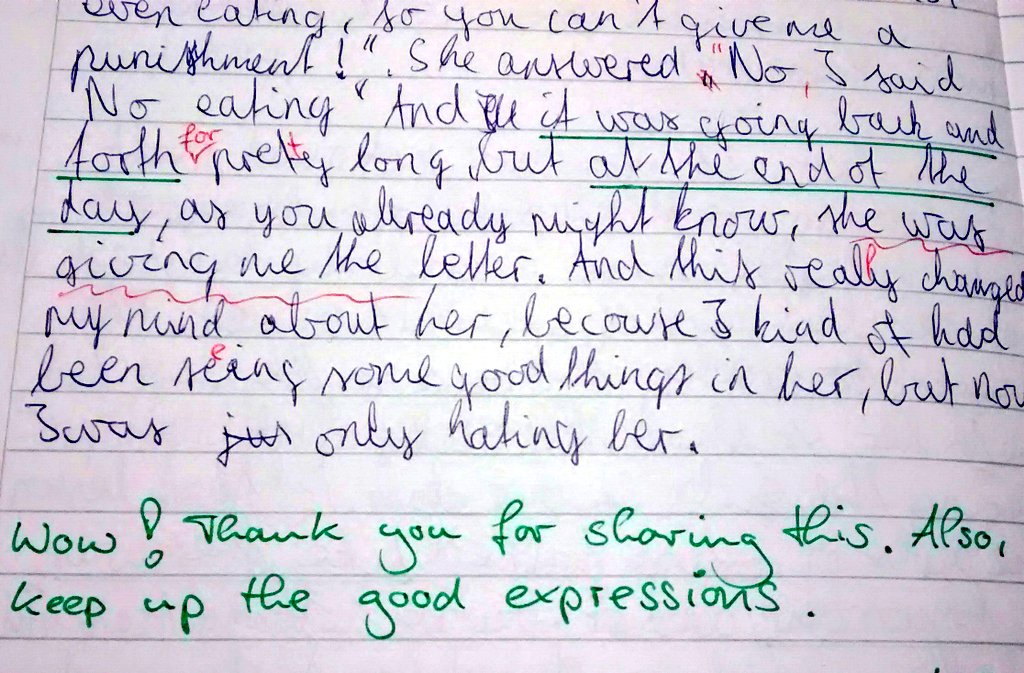 even eating, so you can't give me a
punishment!". She answered "No, I said
"No eating" And it was going back and
forth for pretty long, but at the end of the
day, as you already might know, she was
giving me the letter. And this really changed
my mind about her, because I kind of had
been seeing some good things in her, but now
I was jus only hating her.
Wow! Thank you for sharing this. Also,
keep up the good expressions.